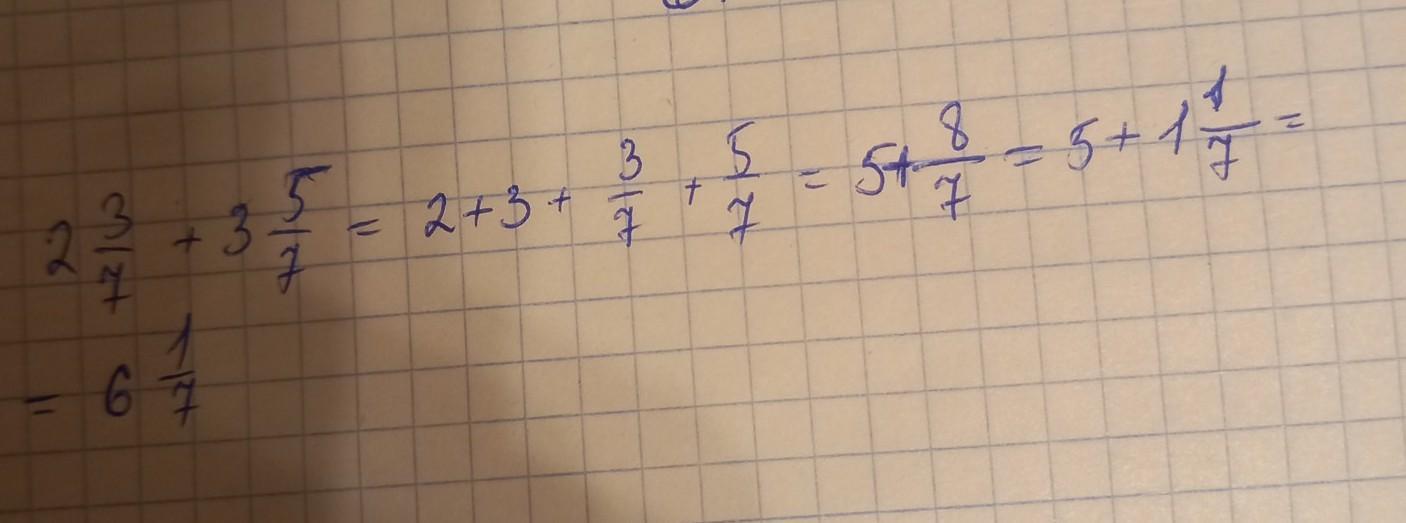 2 3/7 + 3 5/7 = 2+3+ 3/7 + 5/7 = 5+ 8/7 = 5 + 1 1/7 =
= 6 1/7